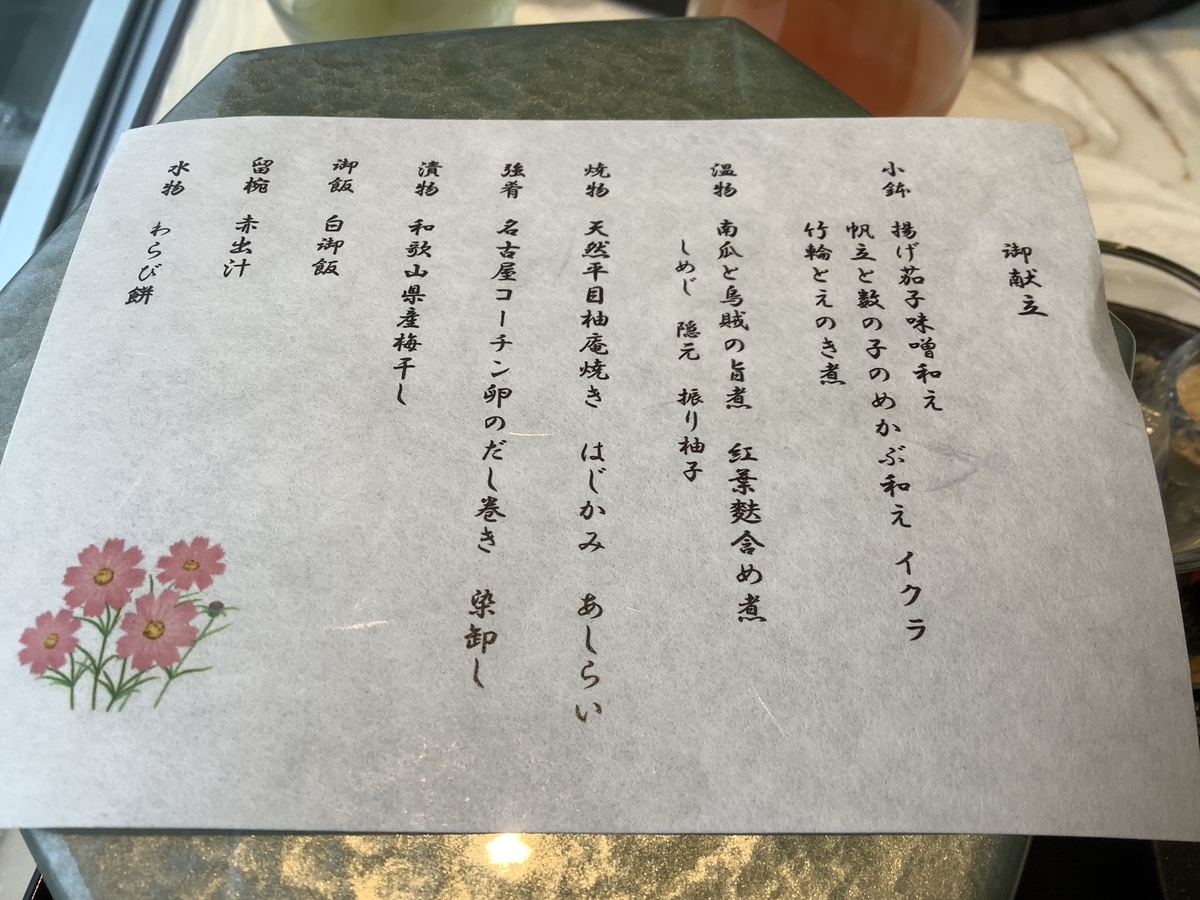 御献立
小鉢 揚げ茄子味噌和え
帆立と数の子のめかぶ和え イクラ
竹輪とえのき煮
温物 南瓜と烏賊の旨煮 紅葉麩含め煮
しめじ 隠元 振り柚子
焼物 天然平目柚庵焼き はじかみ あしらい
強肴 名古屋コーチン卵のだし巻き 染卸し
漬物 和歌山県産梅干し
御飯 白御飯
留椀 赤出汁
水物 わらび餅